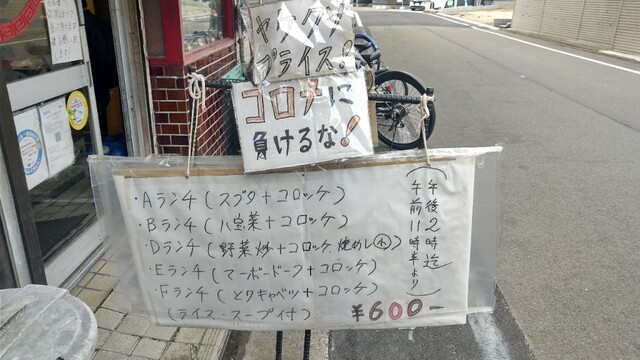 ヤケクソ
プライス!
コロナに
負けるな!
・Aランチ(スブタ+コロッケ)
・Bランチ(八宝菜+コロッケ)
・Dランチ(野菜炒+コロッケ、焼めし小)
・Eランチ(マーボードーフ+コロッケ)
・Fランチ(とりキャベツ+コロッケ)
(ライス・スープ付)
¥600-
(午前11時半より
午後2時迄)